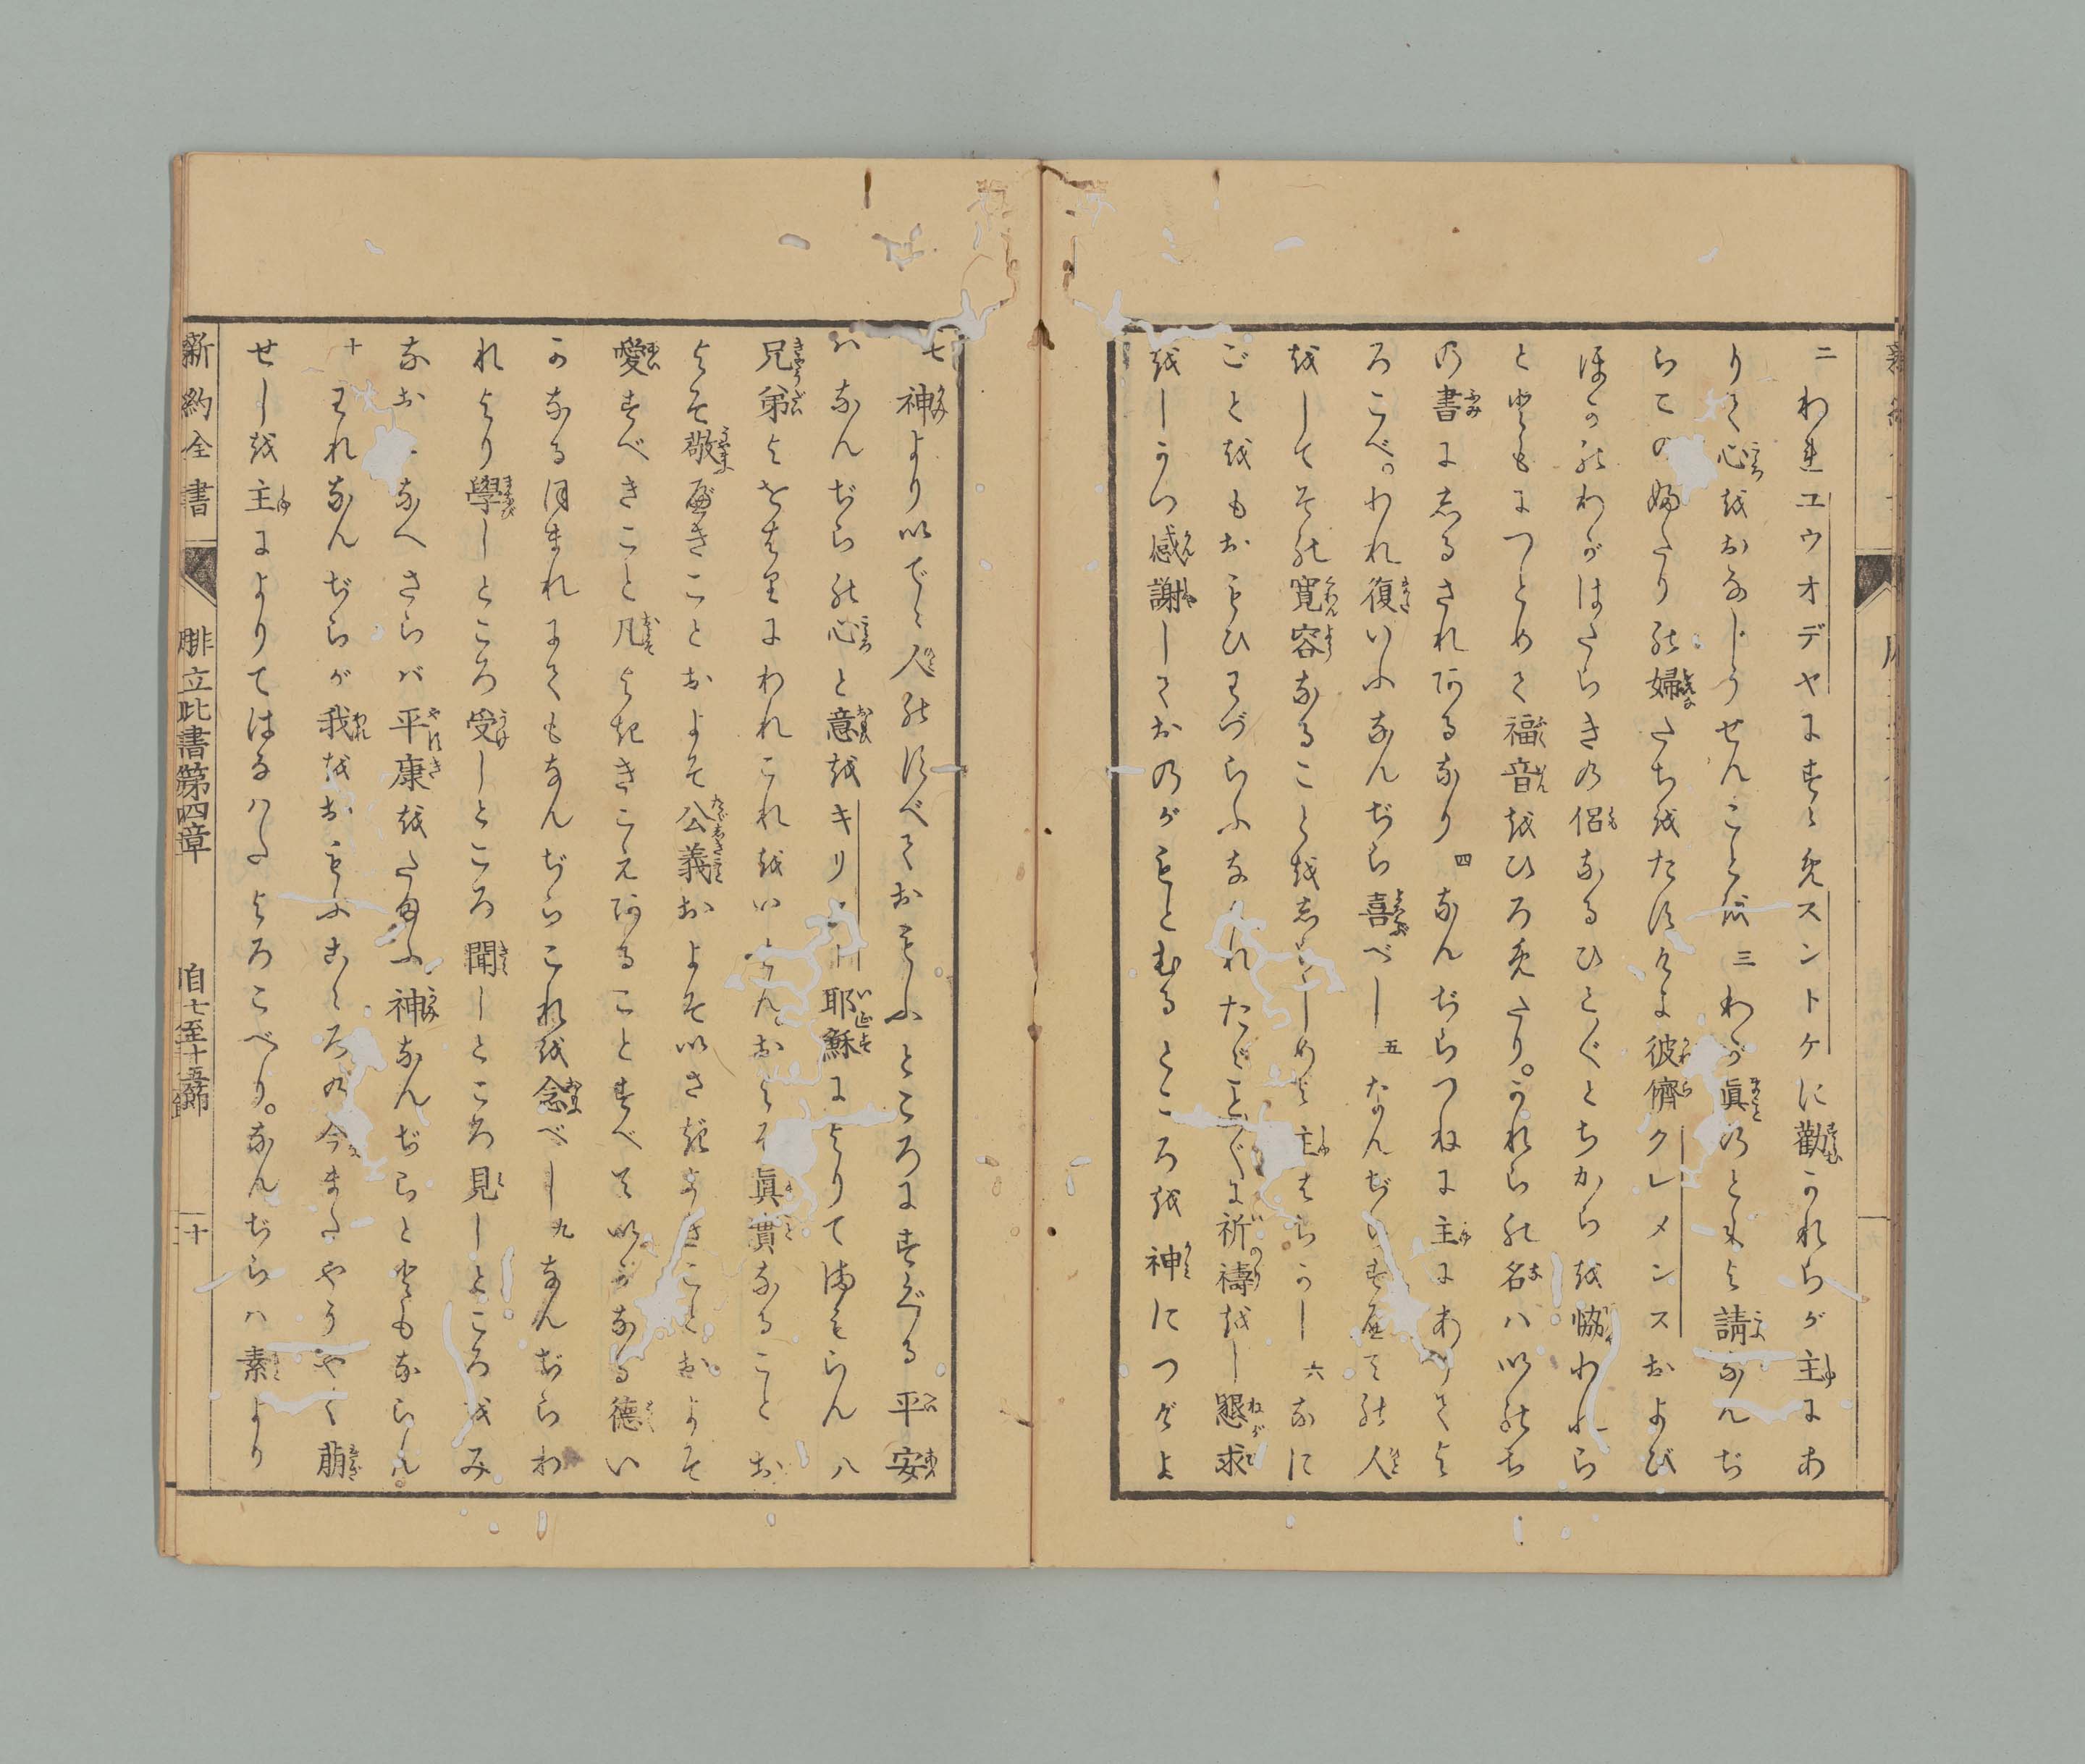 二 われユウオデヤにすゝめスントケに勸かれらが主にあ
りて心をおなじうせんことを 三 わが眞のともよ請なんぢ
らこの婦たりの婦たちをたすけよ彼儕クレメンスおよび
ほかのわがはたらきの侶なるひとぐとちからを協われら
とともにつとめて福音をひろめたり。かれらの名ハいのち
の書にしるされあるなり 四 なんぢらつねに主にありてよ
ろこべ。われ復いふなんぢら喜べし 五 なんぢらすべての人
をしてその寛容なることをしらしめよ主はちかし 六 なに
ごとをもおもひわづらふなかれたゞことぐに祈禱をし懇求
をしかつ感謝しておのがもとむるところを神につげよ
七 神よりいでゝ人のすべておもふところにすぐる平安
ハなんぢらの心と意をキリスト耶穌によりてまもらん 八
兄弟よをはりにわれこれをいはんおよそ眞實なることお
よそ敬べきことおよそ公義およそいさぎよきことおよそ
愛すべきこと凡よききこえあることすべていかなる德い
かなるほまれにてもなんぢらこれを念べし 九 なんぢらわ
れより學しところ受しところ聞しところ見しところをみ
なおこなへさらバ平康をたまふ神なんぢらとともならん。
十 われなんぢらが我をおもふこゝろの今またやうやく萠
せしを主によりてはなはだよろこべり。なんぢらハ素より
新約全書 腓立比書第四章 自七至十五節 十